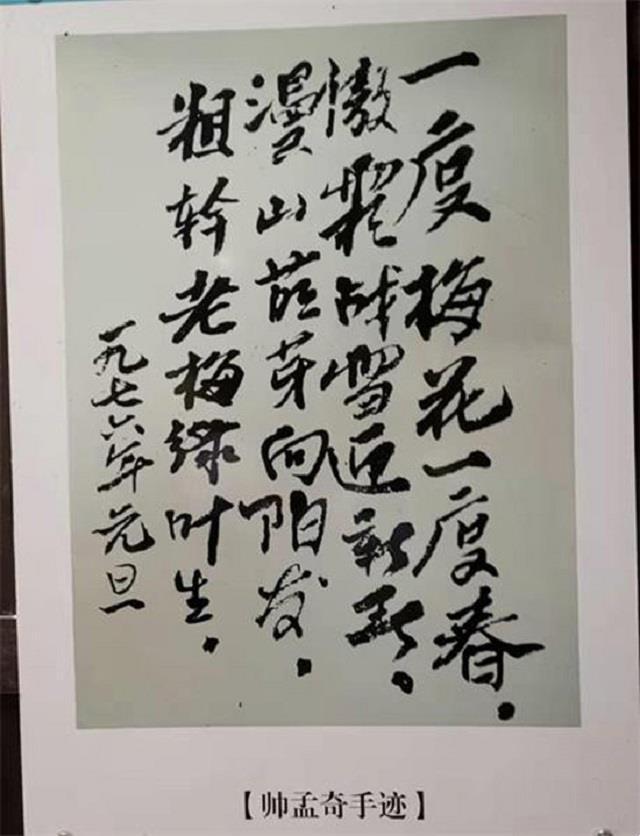 一度梅花一度春.
傲霜战雪迎新.
漫山芽向阳发.
粗幹老梅绿叶生.
一九七六年元旦
【帅孟奇手迹】